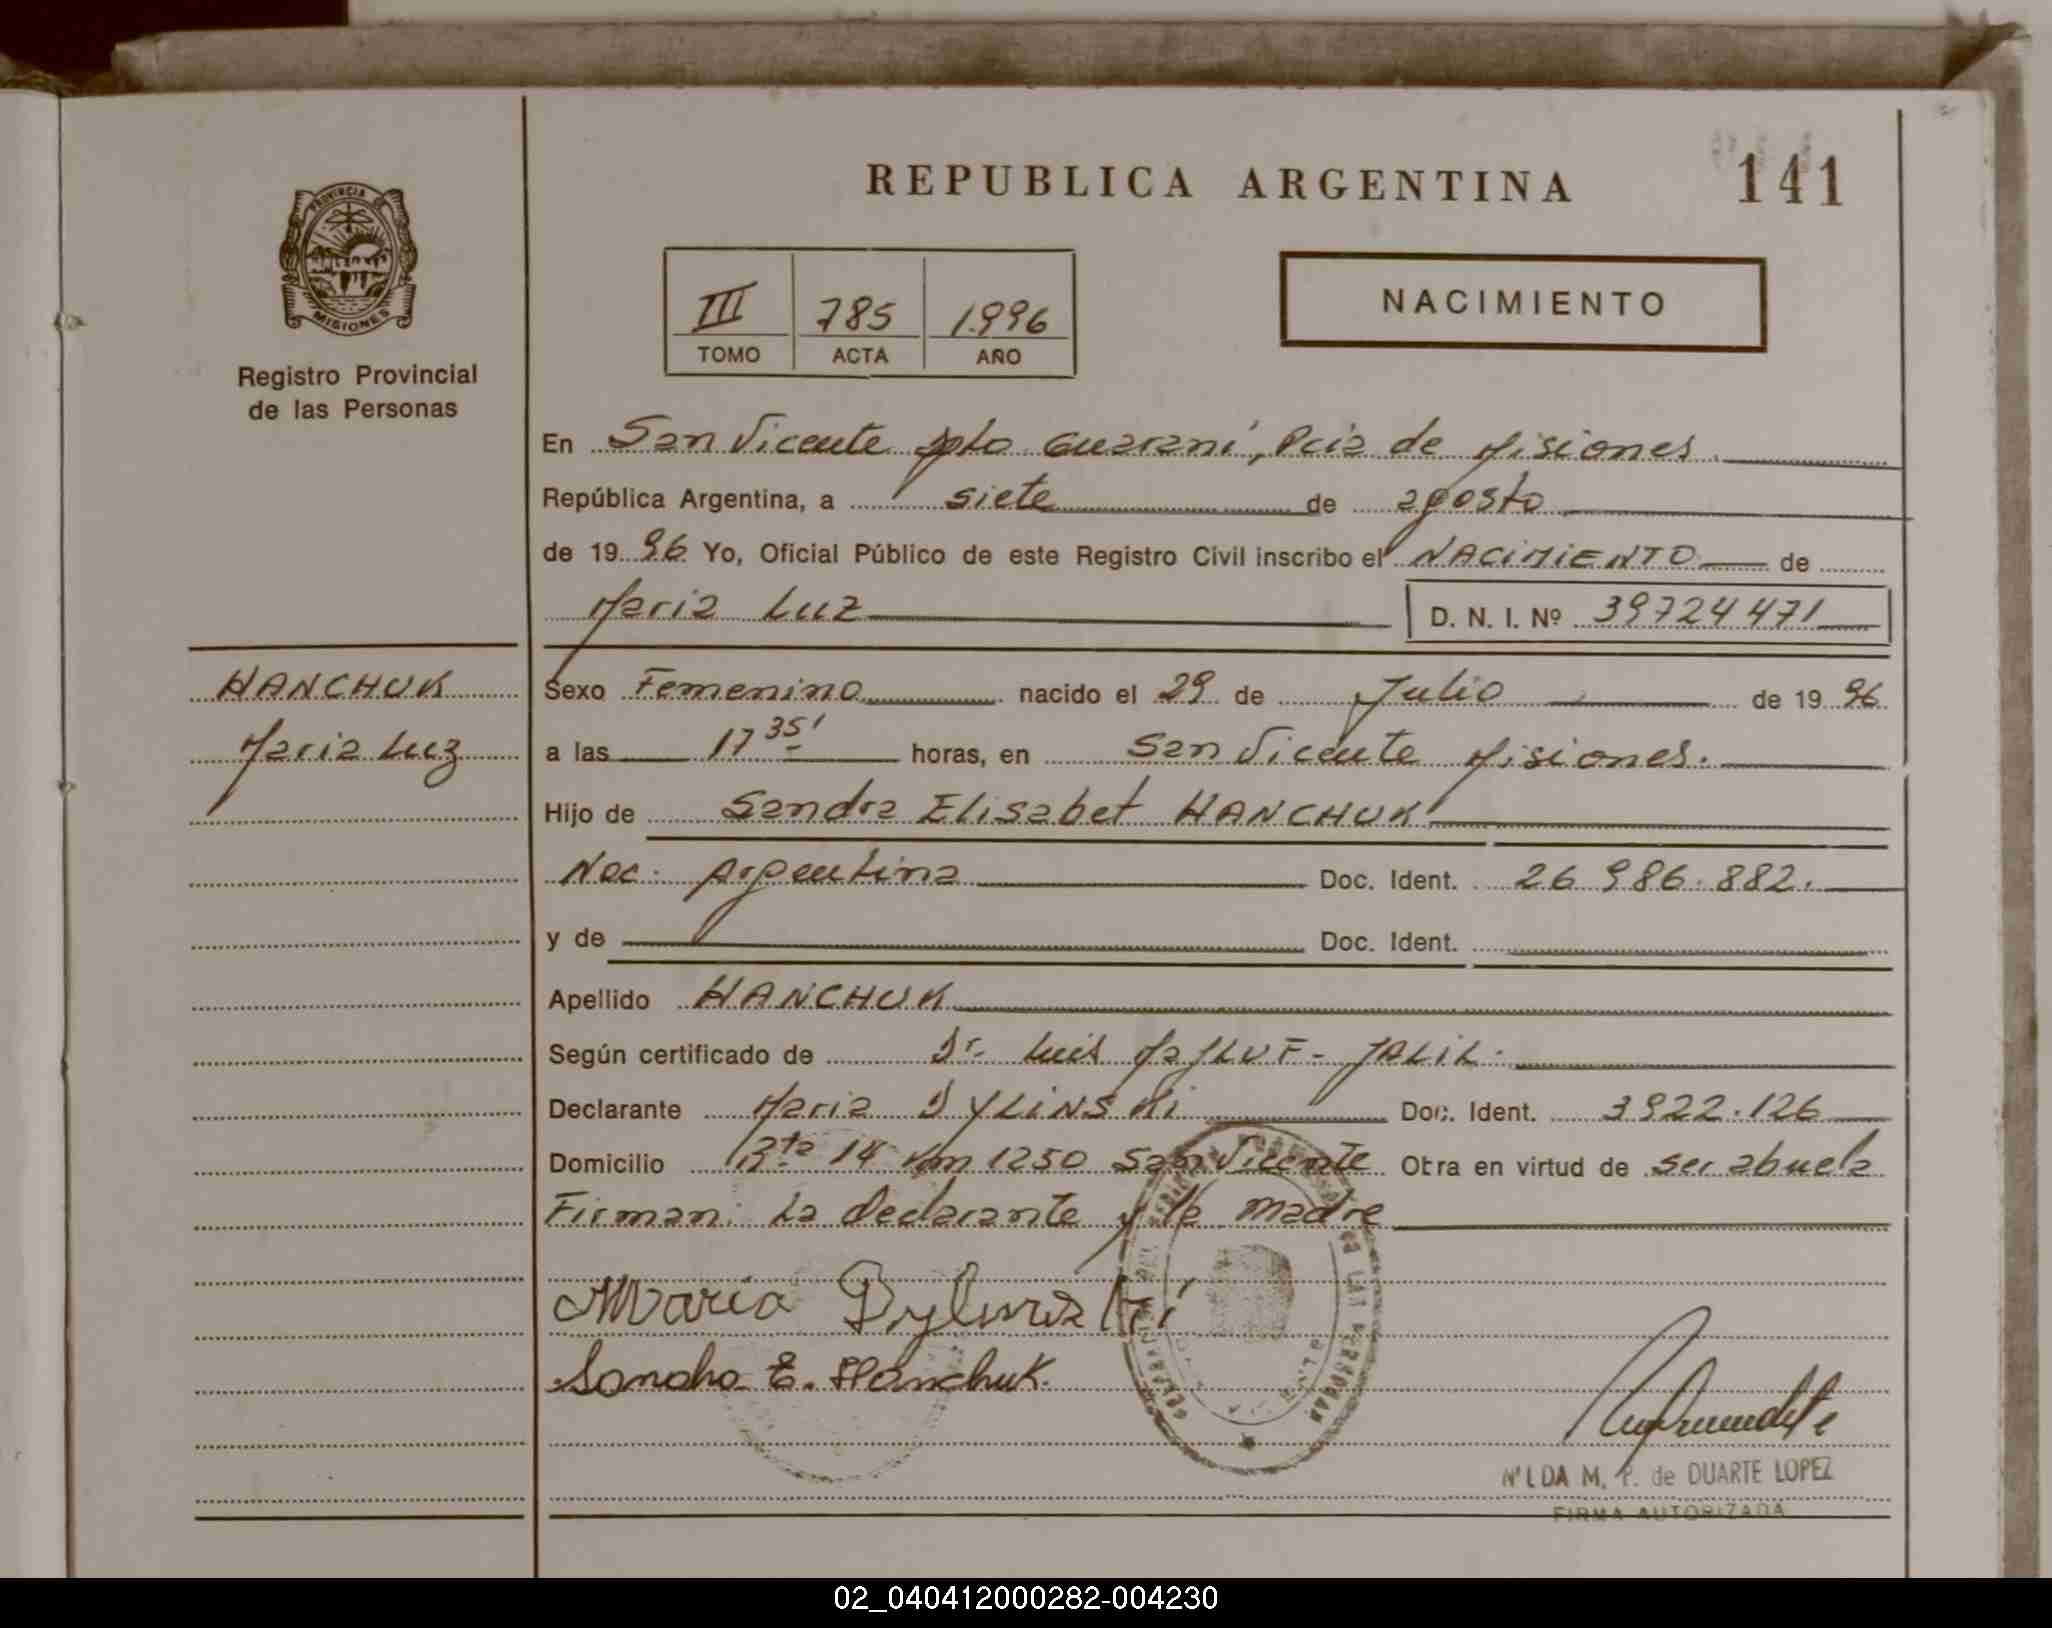 REPUBLICA ARGENTINA
141
PROVINCIA DE
MISIONES
Registro Provincial
de las Personas
III 785 1.996
TOMO ACTA AÑO
NACIMIENTO
En San Vicente Dpto Guaraní, Pcia de Misiones.
República Argentina, a siete de agosto
de 19 96 Yo, Oficial Público de este Registro Civil inscribo el NACIMIENTO de
Maria Luz D. N. I. Nº 39724471
HANCHUK
Maria Luz
Sexo Femenino nacido el 29 de Julio de 19 96
a las 17 35' horas, en San Vicente Misiones.
Hijo de Sandra Elisabet HANCHUK
Nac. Argentina Doc. Ident. 26 986.882.
y de Doc. Ident.
Apellido HANCHUK
Según certificado de Dr. Luis MaJLUF - JALIL.
Declarante Maria DYLINSKi Doc. Ident. 3922.126
Domicilio Rta 14 Km 1250 San Vicente Otra en virtud de ser abuela
Firman: La declarante y la madre
Maria Dylinski
Sandra E. Hanchuk.
NILDA M. P. de DUARTE LOPEZ
FIRMA AUTORIZADA
02_040412000282-004230